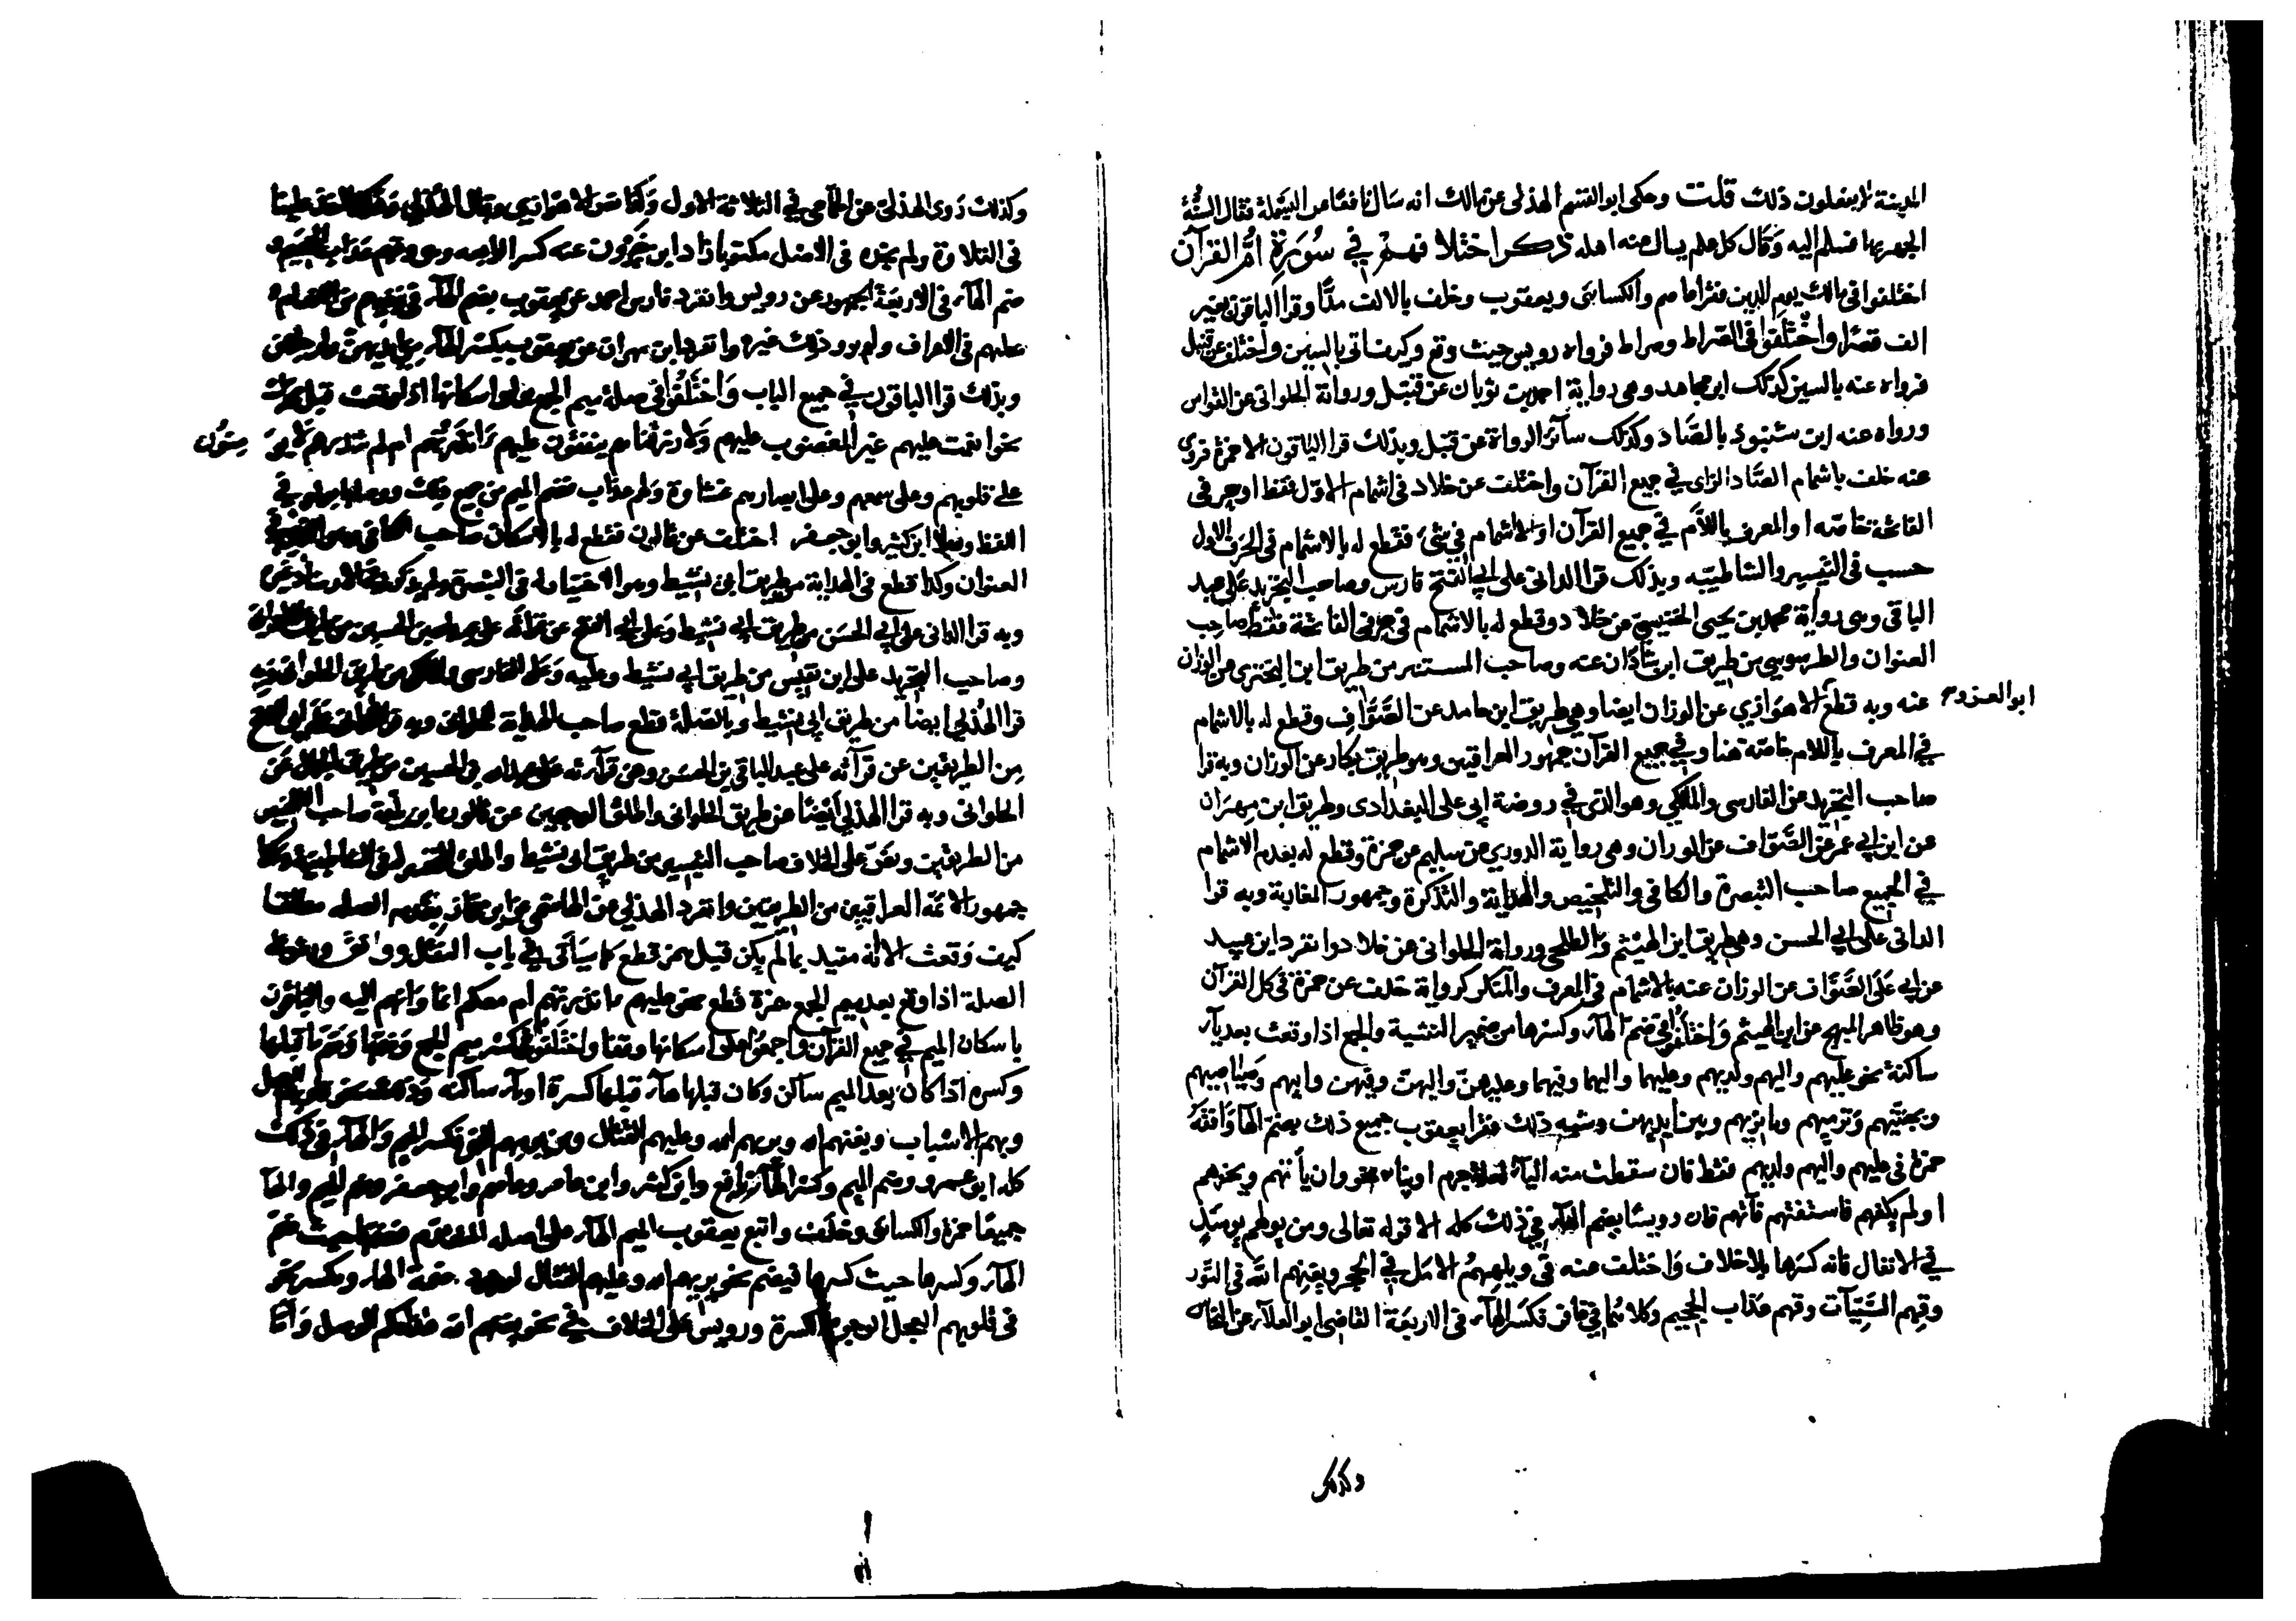 المدينة لا يفعلون ذلك قلت وحكى ابو القسم الهذلى عن مالك انه سال نافعا عن البسملة فقال السنة
الجهر بها فسلم اليه وقال كل علم يسال عنه اهله ذكر اختلافهم في سورة ام القرآن
اختلفوا فى مالك يوم الدين فقرا عاصم والكسائى ويعقوب وخلف بالالف مدا وقرا الباقون بغير
الف قصرا واختلفوا فى الصراط وصراط فرواه رويس حيث وقع وكيف اتى بالسين واختلف عن قنبل
فرواه عنه بالسين كذلك ابن مجاهد وهى رواية احمد بن ثوبان عن قنبل ورواية الحلوانى عن القواس
ورواه عنه ابن شنبوذ بالصاد وكذلك سائر الرواة عن قنبل وبذلك قرا الباقون الا حمزة فروى
عنه خلف باشمام الصاد الزاى في جميع القرآن واختلف عن خلاد فى اشمام الاول فقط او حرفى
الفاتحة خاصة او المعرف باللام في جميع القرآن او لا اشمام في شئ فقطع له بالاشمام فى الحرف الاول
حسب فى التيسير والشاطبية وبذلك قرا الدانى على ابي الفتح فارس وصاحب التجريد على عبد
الباقى وهى رواية محمد بن يحيى الخنيسي عن خلاد وقطع له بالاشمام فى حرفى الفاتحة فقط صاحب
العنوان والطرسوسي من طريق ابن شاذان عنه وصاحب المستنير من طريق ابن البختري عن الوزان
عنه وبه قطع ابو العز والاهوازي عن الوزان ايضا وهى طريق ابن حامد عن الصواف وقطع له بالاشمام
في المعرف باللام خاصة هنا وفي جميع القرآن جمهور العراقيين وهو طريق بكار عن الوزان وبه قرا
صاحب التجريد على الفارسى والمالكي وهو الذى في روضة ابى على البغدادى وطريق ابن مهران
عن ابن ابي عمر عن الصواف عن الوزان وهى رواية الدوري عن سليم عن حمزة وقطع له بعدم الاشمام
في الجميع صاحب التبصرة والكافى والتلخيص والهداية والتذكرة وجمهور المغاربة وبه قرا
الدانى على ابي الحسن وهى طريق ابن الهيثم والطلحى ورواية الحلوانى عن خلاد وانفرد ابن عبيد
عن ابي على الصواف عن الوزان عنه بالاشمام فى المعرف والمنكر كرواية خلف عن حمزة فى كل القرآن
وهو ظاهر المبهج عن ابن الهيثم واختلفوا فى ضم الهاء وكسرها من ضمير التثنية والجمع اذا وقعت بعد ياء
ساكنة نحو عليهم واليهم ولديهم وعليهما واليهما وفيهما وعليهن واليهن وفيهن وابيهم وصياصيهم
وبجنتيهم وترميهم وما نريهم وبين ايديهن وشبه ذلك فقرا يعقوب جميع ذلك بضم الهاء وافقه
حمزة فى عليهم واليهم ولديهم فقط فان سقطت منه الياء لعلة جزم او بناء نحو وان يأتهم ويخزهم
اولم يكفهم فاستفتهم فآتهم فان رويسا يضم الهاء في ذلك كله الا قوله تعالى ومن يولهم يومئذ
في الانفال فانه كسرها بلا خلاف واختلف عنه في ويلههم الامل في الحجر ويغنهم الله فى النور
وقهم السيئات وقهم عذاب الجحيم وكلاهما في غافر فكسر الهاء فى الاربعة القاضى ابو العلاء عن النخاس
وكذلك
وكذلك روى الهذلى عن الحمامى في الثلاثة الاول وكذا نص الاهوازي وقال الهذلي
فى التلاوة ولم يجده فى الاصل مكتوبا زاد ابن خيرون عنه كسر الرابعه وهى وقهم عذاب الجحيم
ضم الهاء فى الاربعة الجمهور عن رويس وانفرد فارس بن احمد عن يعقوب بضم الهاء في
عليهم فى الاعراف ولم يرو ذلك غيره وانفرد ابن مهران عن يعقوب بكسر الهاء من ايديهن وارجلهن
وبذلك قرا الباقون في جميع الباب واختلفوا فى صلة ميم الجمع بواو واسكانها اذا وقعت قبل محرك
نحو انعمت عليهم غير المغضوب عليهم ومما رزقناهم ينفقون عليهم ءانذرتهم ام لم تنذرهم لا يؤمنون
على قلوبهم وعلى سمعهم وعلى ابصارهم غشاوة ولهم عذاب فضم الميم من جميع ذلك ووصلها بواو في
اللفظ وفعلا ابن كثير وابو جعفر واختلف عن قالون فقطع له بالاسكان صاحب الكافى وهو الذى في
العنوان وكذا قطع فى الهداية من طريق ابى نشيط وهو الاختيار له فى التبصرة ولم يذكر
وبه قرا الدانى على ابي الحسن من طريق ابي نشيط وعلى ابي الفتح عن قرائته على عبد الله بن الحسين من طريق الحلوانى
وصاحب التجريد على ابن نفيس من طريق ابي نشيط وعليه وعلى الفارسى والمالكى من طريق الحلوانى وبه
قرا الهذلي ايضا من طريق ابي نشيط وبالصلة قطع صاحب الهداية للحلوانى وبه قرا الدانى على ابي الفتح
من الطريقين عن قرآته على عبد الباقى بن الحسن وعن قرآته على عبد الله بن الحسين من طريق الجمال عن
الحلوانى وبه قرا الهذلي ايضا من طريق الحلوانى واطلق الوجهين عن قالون ابن بليمة صاحب التلخيص
من الطريقين ونص على الخلاف صاحب التيسير من طريق ابى نشيط واطلق التخيير له فى الشاطبية وكذا
جمهور الائمة العراقيين من الطريقين وانفرد الهذلى عن الهاشمى عن ابن جماز بعدم الصلة مطلقا
كيف وقعت الا انه مقيد بما لم يكن قبل همز قطع كما سيأتى في باب النقل ووافق ورش على
الصلة اذا وقع بعد ميم الجمع همزة قطع نحو عليهم ءانذرتهم ام معكم انما وانهم اليه والباقون
باسكان الميم في جميع القرآن واجمعوا على اسكانها وقفا واختلفوا فى كسر ميم الجمع وضمها وضم ما قبلها
وكسره اذا كان بعد الميم ساكن وكان قبلها هاء قبلها كسرة او ياء ساكنة وذلك نحو قلوبهم العجل
وبهم الاسباب ويغنهم الله ويريهم الله وعليهم القتال ومن يومهم الذى فكسر الميم والهاء فى ذلك
كله ابو عمرو وضم الميم وكسر الهاء نافع وابن كثير وابن عامر وعاصم وابو جعفر وضم الميم والهاء
جميعا حمزة والكسائى وخلف واتبع يعقوب الميم الهاء على اصله المتقدم فضمها حيث ضم
الهاء وكسرها حيث كسرها فيضم نحو يريهم الله وعليهم القتال لوجود ضمة الهاء ويكسر نحو
فى قلوبهم العجل لوجود الكسرة ورويس على الخلاف في نحو يغنهم الله هذا حكم الوصل واما